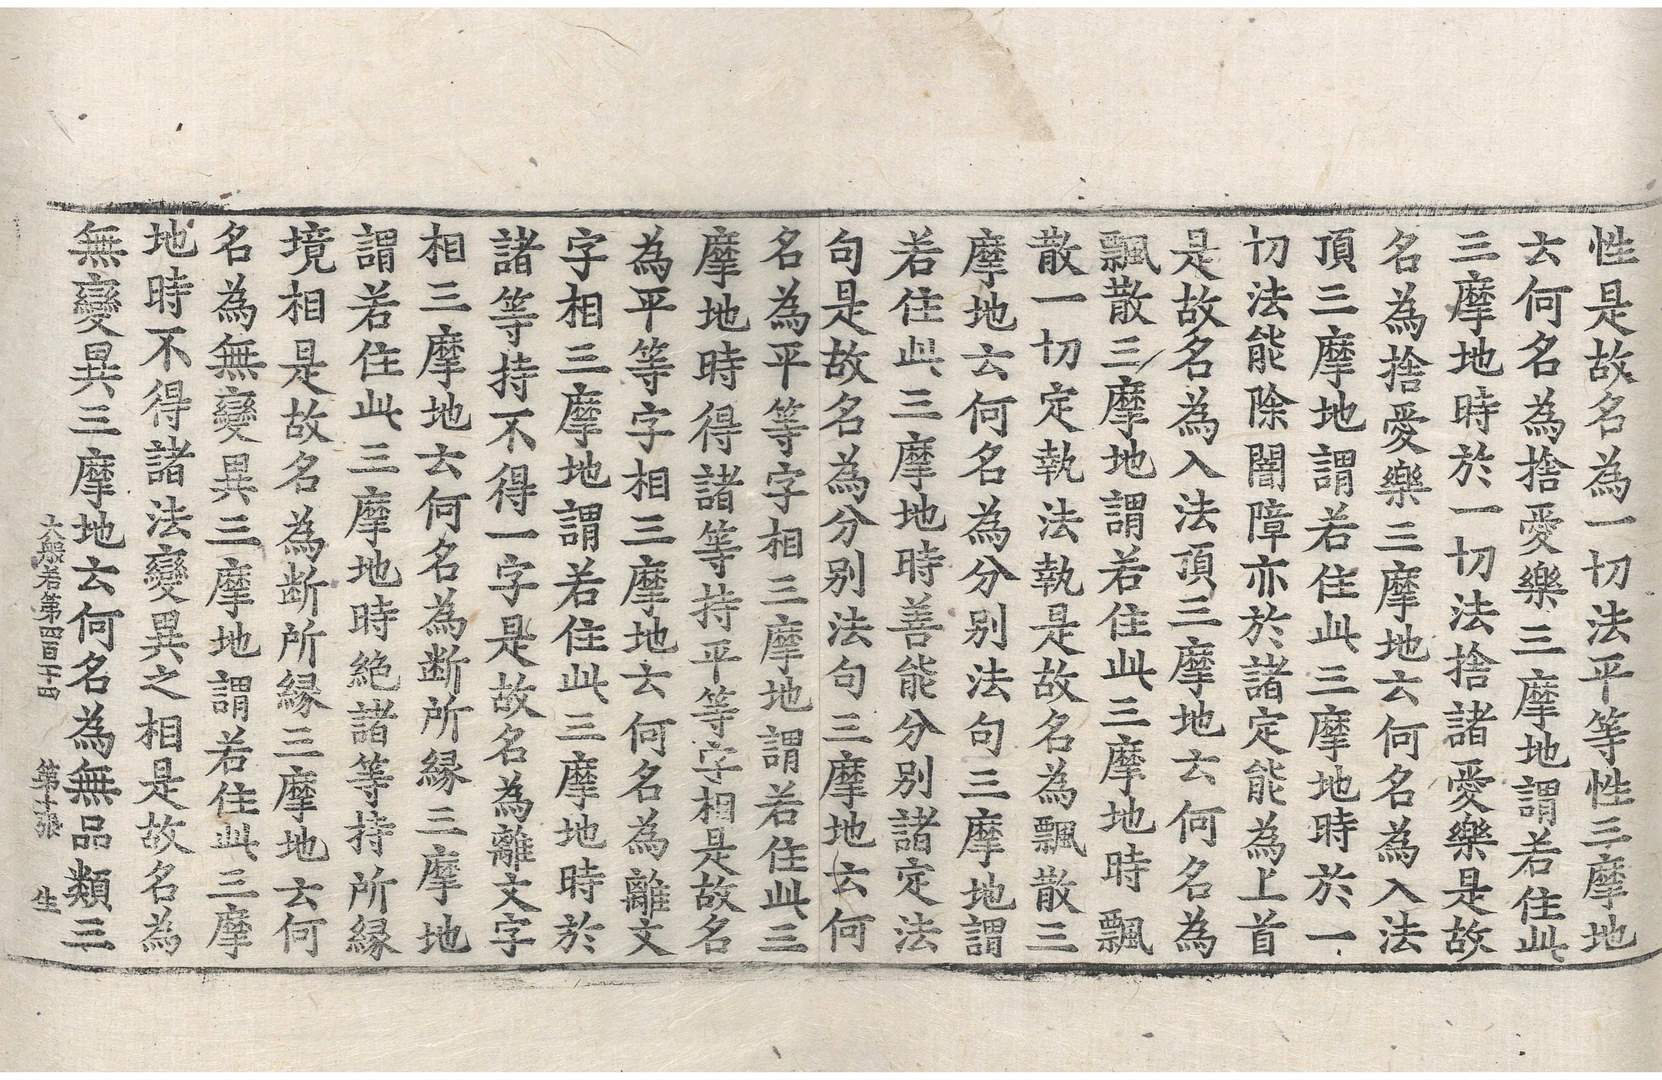 性是故名為一切法平等性三摩地
云何名為捨愛樂三摩地謂若住此
三摩地時於一切法捨諸愛樂是故
名為捨愛樂三摩地云何名為入法
頂三摩地謂若住此三摩地時於一
切法能除闇障亦於諸定能為上首
是故名為入法頂三摩地云何名為
飄散三摩地謂若住此三摩地時飄
散一切定執法執是故名為飄散三
摩地云何名為分別法句三摩地謂
若住此三摩地時善能分別諸定法
句是故名為分別法句三摩地云何
名為平等字相三摩地謂若住此三
摩地時得諸等持平等字相是故名
為平等字相三摩地云何名為離文
字相三摩地謂若住此三摩地時於
諸等持不得一字是故名為離文字
相三摩地云何名為断所縁三摩地
謂若住此三摩地時絶諸等持所縁
境相是故名為断所縁三摩地云何
名為無變異三摩地謂若住此三摩
地時不得諸法變異之相是故名為
無變異三摩地云何名為無品類三
大般若第四百十四 第十張 生